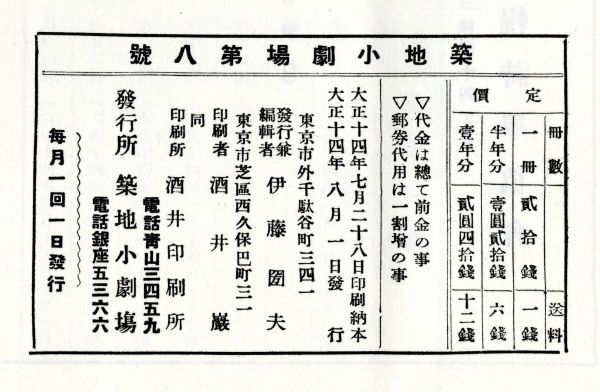 築地小劇場第八號
定價
冊數
送料
一冊 貳拾錢 一錢
半年分 壹圓貳拾錢 六錢
壹年分 貳圓四拾錢 十二錢
▽代金は總て前金の事
▽郵券代用は一割增の事
大正十四年七月二十八日印刷納本
大正十四年八月一日發行
東京市外千駄谷町三四一
發行兼編輯者 伊藤圀夫
東京市芝區西久保巴町三一
印刷者 酒井巖
同
印刷所 酒井印刷所
電話靑山三四五九
發行所 築地小劇場
電話銀座五三六六
每月一回一日發行